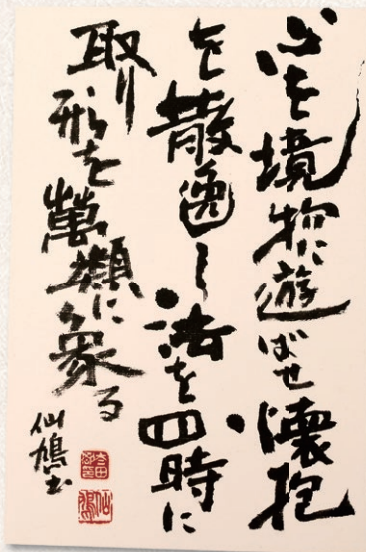 心を境物に遊ばせ懷抱
を散逸し法を四時に
取り形を萬類に象る
仙鳩書